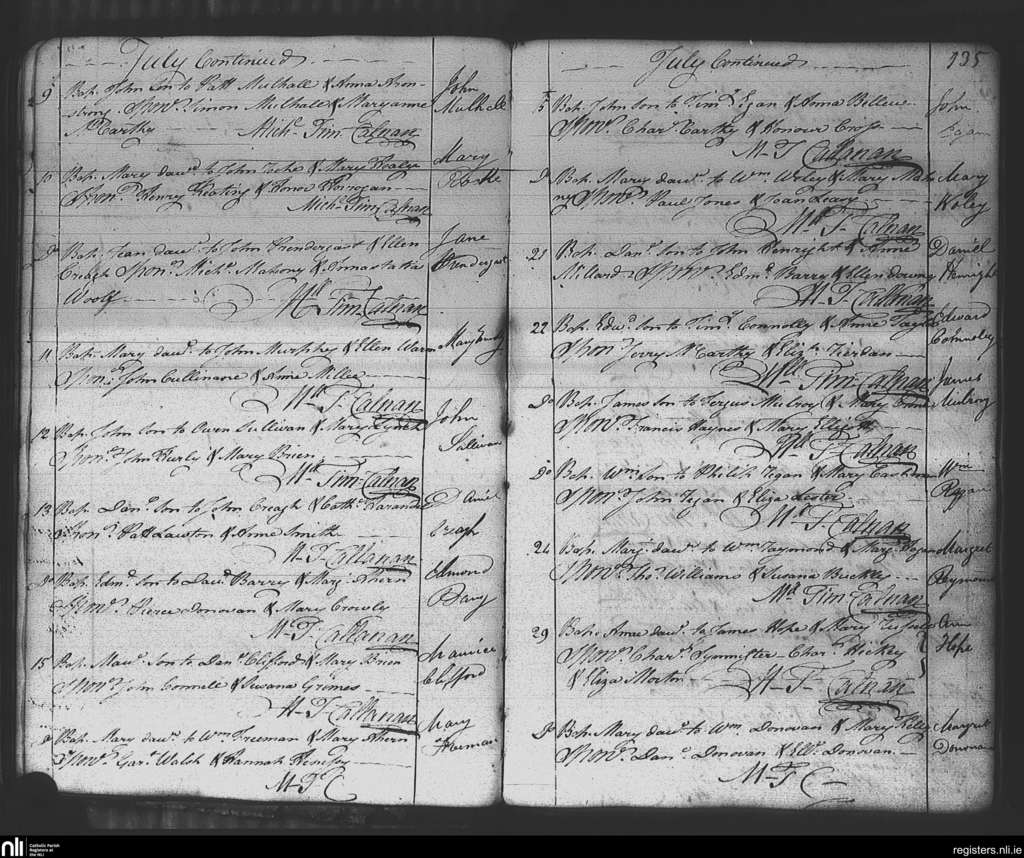 July Continued
9 Bap. John Son to Patt Mulhall & Anna Arm-
strong Sponrs. Simon Mulhall & Maryanne
McCarthy Michl. Tim. Calnan
John
Mulhall
10 Bap. Mary daur. to John & Mary Healy
Sponrs. Henry Keating & Honor
Michl. Tim Calnan
Mary
Do Bap. Jean daur. to John Prendergast & Ellen
Creagh Sponrs. Michl. Mahony & Annastatia
Woolf Mr. Tim Calnan
Jane
Prendergast
11 Bap. Mary daur. to John Murphy & Ellen
Sponrs. John Cullinane & Anne Miller
Mr. T. Calnan
Mary
12 Bap. John Son to Owen Sullivan & Mary Lynch
Sponrs. John Hurly & Mary Brien
Mr. Tim Calnan
John
Sullivan
13 Bap. Danl. Son to John Creagh & Cathe.
Sponrs. Patt Lawton & Anne Smith
M. T. Callanan
Daniel
Creagh
Do Bap. Edmd. Son to David Barry & Margt. Ahern
Sponrs. Pierce Donovan & Mary Crowly
M. T. Callanan
Edmond
Barry
15 Bap. Maue. Son to Danl. Clifford & Mary Brien
Sponrs. John Connell & Susana Grimes
M. T. Callanan
Maurice
Clifford
Do Bap. Mary daur. to Wm. Freeman & Mary Ahern
Sponrs. Gart. Walsh & Hannah
M. T. C
Mary
Freeman
July Continued
135
5 Bap. John Son to Timy. Egan & Anna Bellew
Sponrs. Chars. Carthy & Honour Cross
M. T. Callanan
John
Egan
Do Bap. Mary daur. to Wm. & Mary
Sponrs. Paul Jones & Joan Leary
Mr. T. Calnan
Mary
21 Bap. Danl. Son to John Henright & Anne
Sponrs. Edmd. Barry & Ellen Downy
M. T. Callanan
Daniel
Henright
22 Bap. Edwd. Son to Timy. Connolly & Anne Taylor
Sponrs. Jerry McCarthy & Eliz. Riordan
Mr. Tim Calnan
Edward
Connolly
Do Bap. James Son to Fergus Mulroy & Mary
Sponrs. Francis Haynes & Mary Elligott
Mr. T. Calnan
James
Mulroy
Do Bap. Wm. Son to Philip & Mary
Sponrs. John & Eliza Lester
Mr. T. Calnan
Wm.
24 Bap. Margt. daur. to Wm. Raymond & Margt. Fagan
Sponrs. Thos. Williams & Susana Buckley
Mr. Tim Calnan
Margret
Raymond
29 Bap. Anne daur. to James Hope & Mary
Sponrs. Chars. Chars. Hickey
& Eliza Morton M. T. Calnan
Ann
Hope
Do Bap. Mary daur. to Wm. Donovan & Mary
Sponrs. Danl. Donovan & Donovan
M. T. C
Margret
Donovan
nli
Catholic Parish
Registers at
the NLI
registers.nli.ie